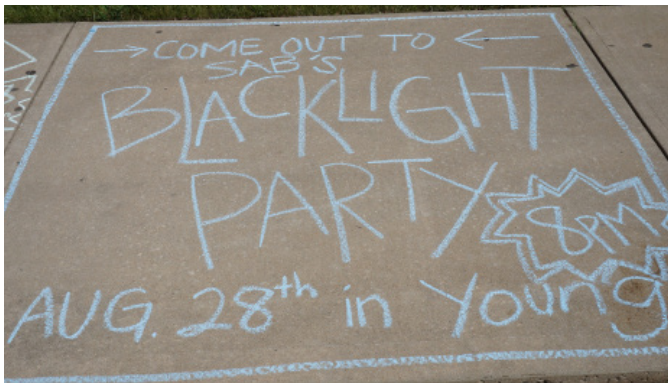 → COME OUT TO ←
SAB'S
BLACKLIGHT
PARTY
8PM
AUG. 28th in Young